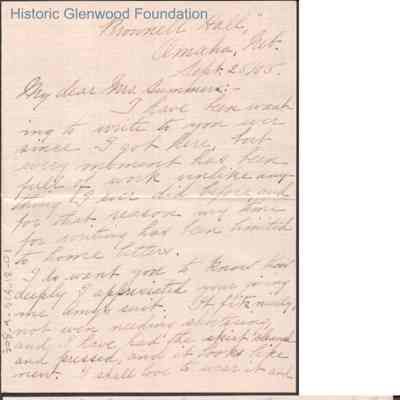 Historic Glenwood Foundation
"Brownell Hall,"
Omaha, Neb.
Sept. 25/05.
My dear Mrs. Summers:-
I have been want
ing to write to you ever
since I got here, but
every moment has been
full of work unlike any
thing I ever did before and
for that reason my time
for writing has been limited
to home letters.
I do want you to know how
deeply I appreciated your giving
me Amy's suit. It fits nicely,
not even needing shortening,
and I have had the skirt cleaned
and pressed, and it looks like
new. I shall love to wear it and